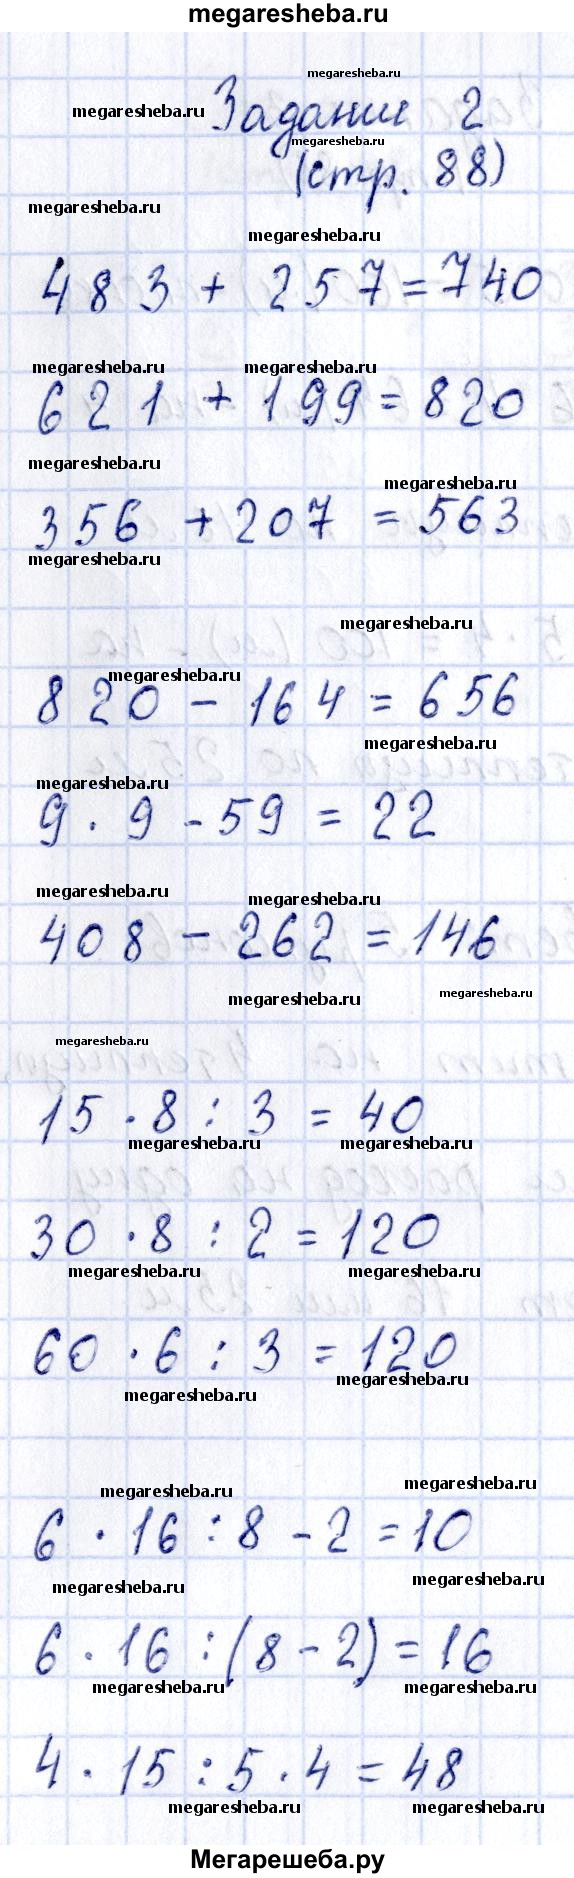 megaresheba.ru
megaresheba.ru
Задание 2
megaresheba.ru
megaresheba.ru
(стр. 88)
megaresheba.ru
megaresheba.ru
483 + 257 = 740
megaresheba.ru megaresheba.ru
621 + 199 = 820
megaresheba.ru
megaresheba.ru
356 + 207 = 563
megaresheba.ru
megaresheba.ru
megaresheba.ru
820 - 164 = 656
megaresheba.ru
megaresheba.ru
9 · 9 - 59 = 22
megaresheba.ru
megaresheba.ru
408 - 262 = 146
megaresheba.ru megaresheba.ru
megaresheba.ru
15 · 8 : 3 = 40
megaresheba.ru megaresheba.ru
30 · 8 : 2 = 120
megaresheba.ru megaresheba.ru
60 · 6 : 3 = 120
megaresheba.ru
megaresheba.ru
megaresheba.ru
megaresheba.ru
6 · 16 : 8 - 2 = 10
megaresheba.ru
megaresheba.ru
6 · 16 : (8 - 2) = 16
megaresheba.ru megaresheba.ru
4 · 15 : 5 · 4 = 48
megaresheba.ru megaresheba.ru
Мегарешеба.ру